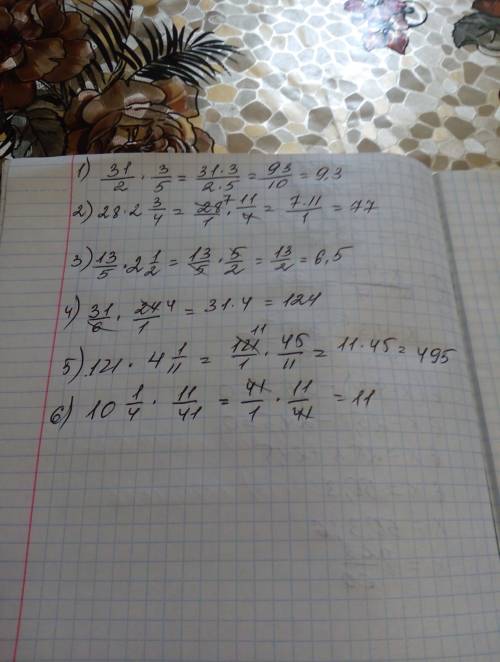 1) 31/2 · 3/5 = 31·3/2·5 = 93/10 = 9,3
2) 28 · 2 3/4 = 28 7/1 · 11/4 = 7·11/1 = 77
3) 13/5 · 2 1/2 = 13/5 · 5/2 = 13/2 = 6,5
4) 31/6 · 24 4/1 = 31·4 = 124
5) 121 · 4 1/11 = 121 11/1 · 45/11 = 11·45 = 495
6) 10 1/4 · 11/41 = 41/1 · 11/41 = 11